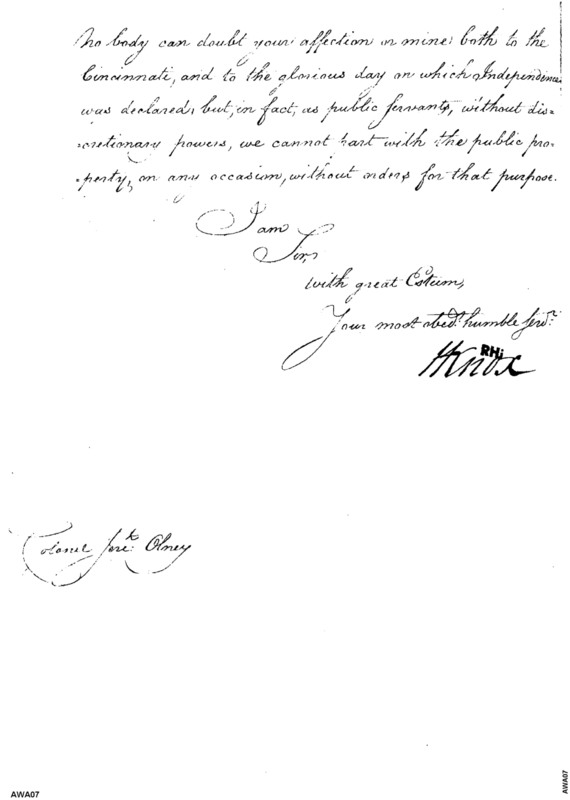 No body can doubt your affection or mine both to the
Cincinnati, and to the glorious day on which Independence
was declared, but, in fact, as public servants, without dis=
=cretionary powers, we cannot part with the public pro=
=perty, on any occasion, without orders for that purpose.
I am
Sir,
with great Esteem,
Your most obedt. humble servt.
HKnox
RHi
Colonel Jere: Olney
AWA07
AWA07